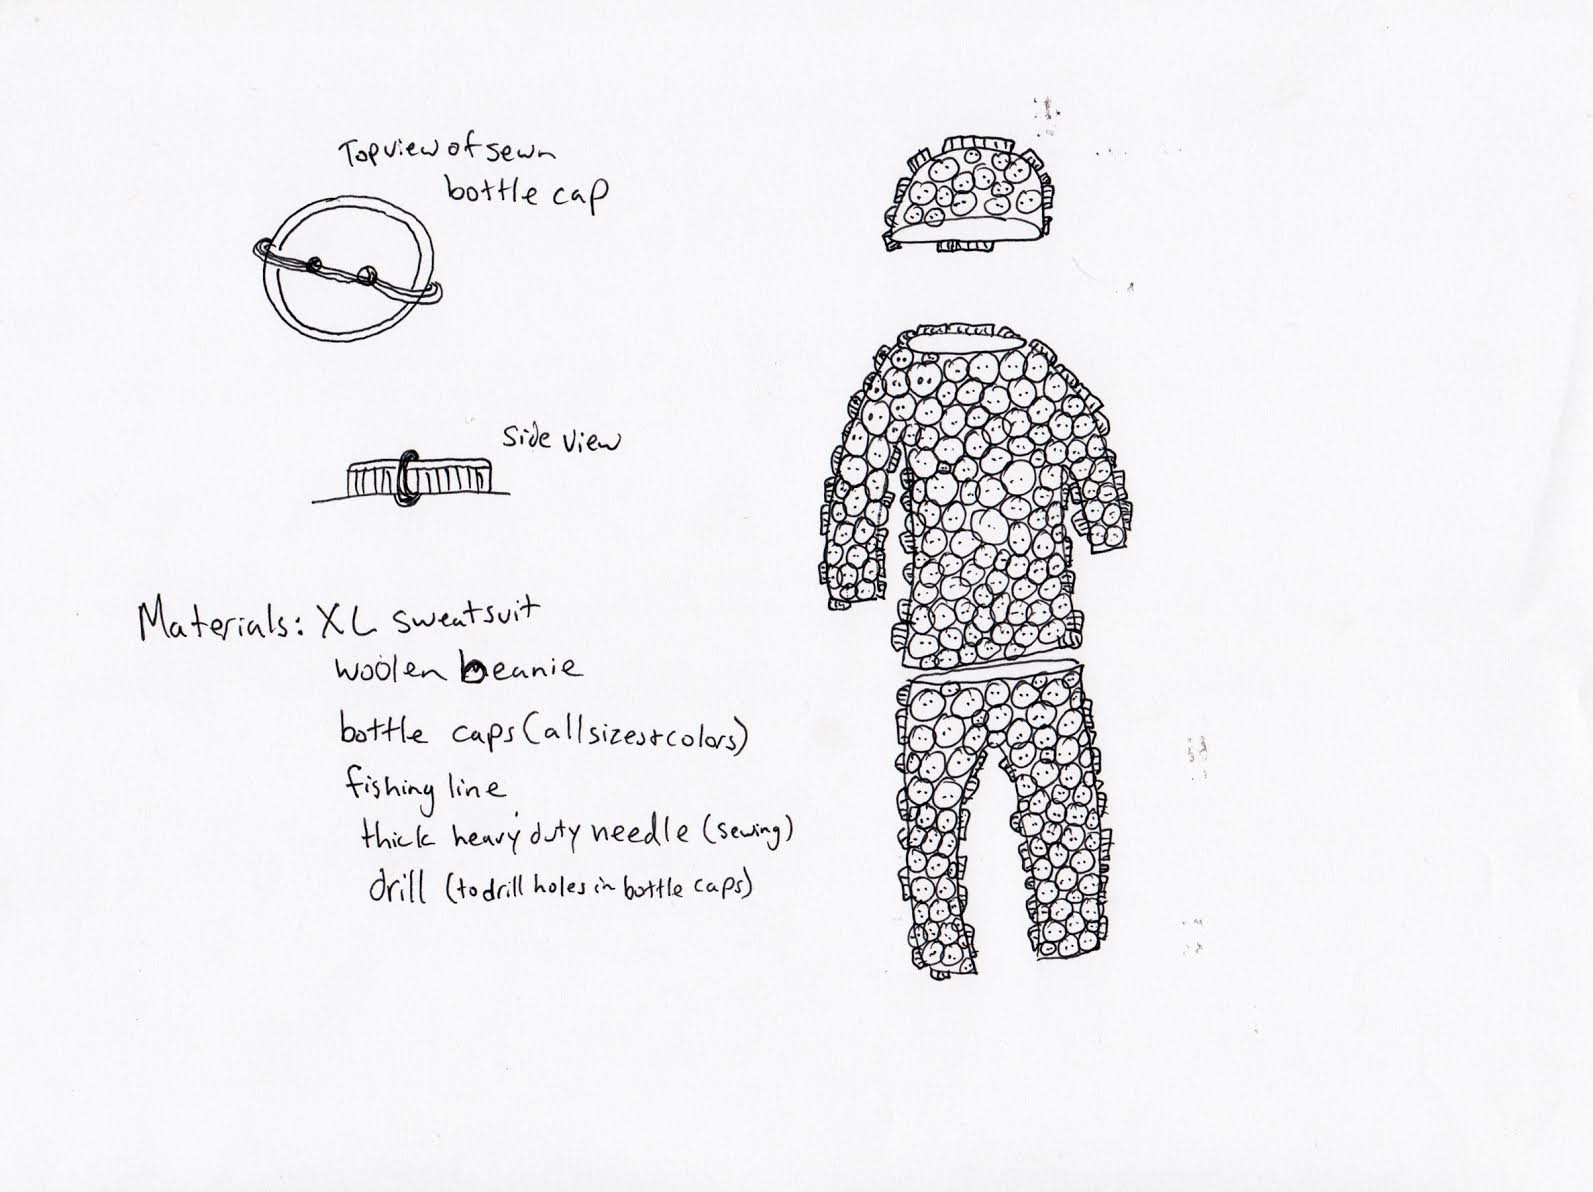 Top view of sewn
bottle cap
Side view
Materials: XL sweatsuit
woolen beanie
bottle caps (all sizes + colors)
fishing line
thick heavy duty needle (sewing)
drill (to drill holes in bottle caps)